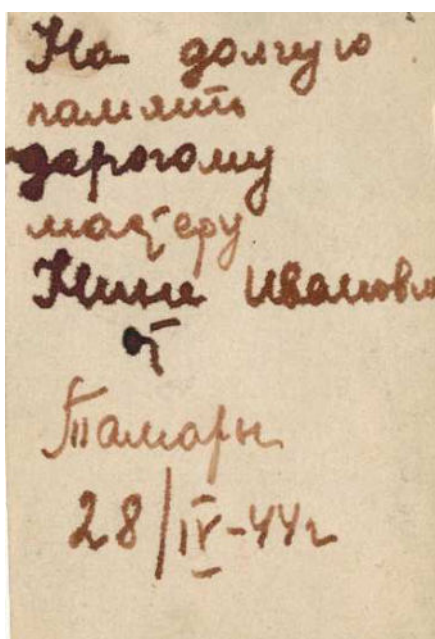 На долгую
память
дарогому
мастеру
Нине Ивановн
от
Тамары
28/IV-44г